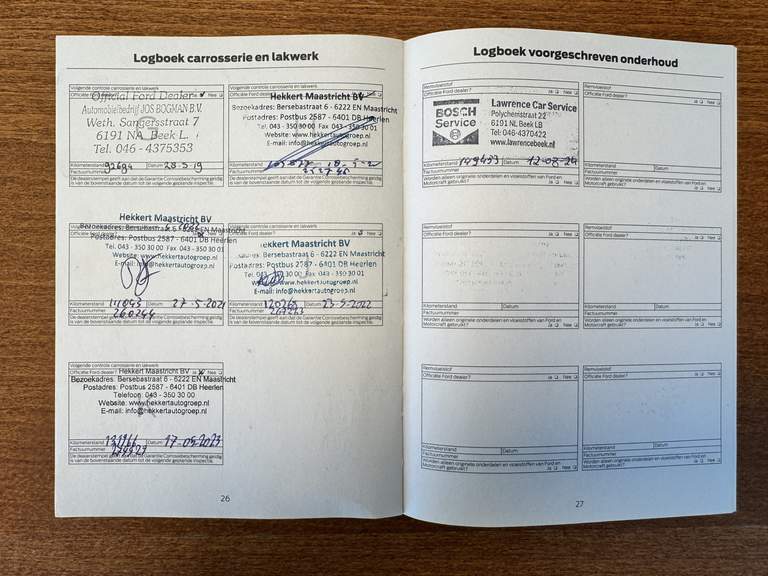 Logboek carrosserie en lakwerk
Volgende controle carrosserie en lakwerk
Officiële Ford dealer? Ja Nee
Official Ford Dealer
Automobielbedrijf JOS BOGMAN B.V.
Weth. Sangersstraat 7
6191 NA Beek L.
Tel. 046 - 4375353
Kilometerstand 92684 Datum 28-5-19
Factuurnummer
De dealerstempel geeft aan dat de Garantie Corrosiebescherming geldig
is van de bovenstaande datum tot de volgende geplande inspectie.
Volgende controle carrosserie en lakwerk
Hekkert Maastricht BV
Bezoekadres: Bersebastraat 6 - 6222 EN Maastricht
Postadres: Postbus 2587 - 6401 DB Heerlen
Tel. 043 - 350 30 00 Fax 043 - 350 30 01
Website: www.hekkertautogroep.nl
E-mail: info@hekkertautogroep.nl
Kilometerstand Datum
Factuurnummer
De dealerstempel geeft aan dat de Garantie Corrosiebescherming geldig
is van de bovenstaande datum tot de volgende geplande inspectie.
Hekkert Maastricht BV
Bezoekadres: Bersebastraat 6 - 6222 EN Maastricht
Postadres: Postbus 2587 - 6401 DB Heerlen
Tel. 043 - 350 30 00 Fax 043 - 350 30 01
Website: www.hekkertautogroep.nl
E-mail: info@hekkertautogroep.nl
Kilometerstand Datum 27-5-2021
Factuurnummer 260244
De dealerstempel geeft aan dat de Garantie Corrosiebescherming geldig
is van de bovenstaande datum tot de volgende geplande inspectie.
Volgende controle carrosserie en lakwerk
Officiële Ford dealer? Ja Nee
Hekkert Maastricht BV
Bezoekadres: Bersebastraat 6 - 6222 EN Maastricht
Postadres: Postbus 2587 - 6401 DB Heerlen
Tel. 043 - 350 30 00 Fax 043 - 350 30 01
Website: www.hekkertautogroep.nl
E-mail: info@hekkertautogroep.nl
Kilometerstand Datum 23-5-2022
Factuurnummer
De dealerstempel geeft aan dat de Garantie Corrosiebescherming geldig
is van de bovenstaande datum tot de volgende geplande inspectie.
Volgende controle carrosserie en lakwerk
Officiële Ford dealer? Ja Nee
Hekkert Maastricht BV
Bezoekadres: Bersebastraat 6 - 6222 EN Maastricht
Postadres: Postbus 2587 - 6401 DB Heerlen
Telefoon: 043 - 350 30 00
Website: www.hekkertautogroep.nl
E-mail: info@hekkertautogroep.nl
Kilometerstand Datum 17-05-2023
Factuurnummer
De dealerstempel geeft aan dat de Garantie Corrosiebescherming geldig
is van de bovenstaande datum tot de volgende geplande inspectie.
26
Logboek voorgeschreven onderhoud
Remvloeistof
Officiële Ford dealer? Ja Nee
BOSCH
Service
Lawrence Car Service
Polychemstraat 22
6191 NL Beek LB
Tel: 046-4370422
www.lawrencebeek.nl
Kilometerstand 149433 Datum 12-07-24
Factuurnummer
Worden alleen originele onderdelen en vloeistoffen van Ford en
Motorcraft gebruikt? Ja Nee
Remvloeistof
Officiële Ford dealer? Ja Nee
Kilometerstand Datum
Factuurnummer
Worden alleen originele onderdelen en vloeistoffen van Ford en
Motorcraft gebruikt? Ja Nee
Remvloeistof
Officiële Ford dealer? Ja Nee
Kilometerstand Datum
Factuurnummer
Worden alleen originele onderdelen en vloeistoffen van Ford en
Motorcraft gebruikt? Ja Nee
Remvloeistof
Officiële Ford dealer? Ja Nee
Kilometerstand Datum
Factuurnummer
Worden alleen originele onderdelen en vloeistoffen van Ford en
Motorcraft gebruikt? Ja Nee
Remvloeistof
Officiële Ford dealer? Ja Nee
Kilometerstand Datum
Factuurnummer
Worden alleen originele onderdelen en vloeistoffen van Ford en
Motorcraft gebruikt? Ja Nee
Remvloeistof
Officiële Ford dealer? Ja Nee
Kilometerstand Datum
Factuurnummer
Worden alleen originele onderdelen en vloeistoffen van Ford en
Motorcraft gebruikt? Ja Nee
27